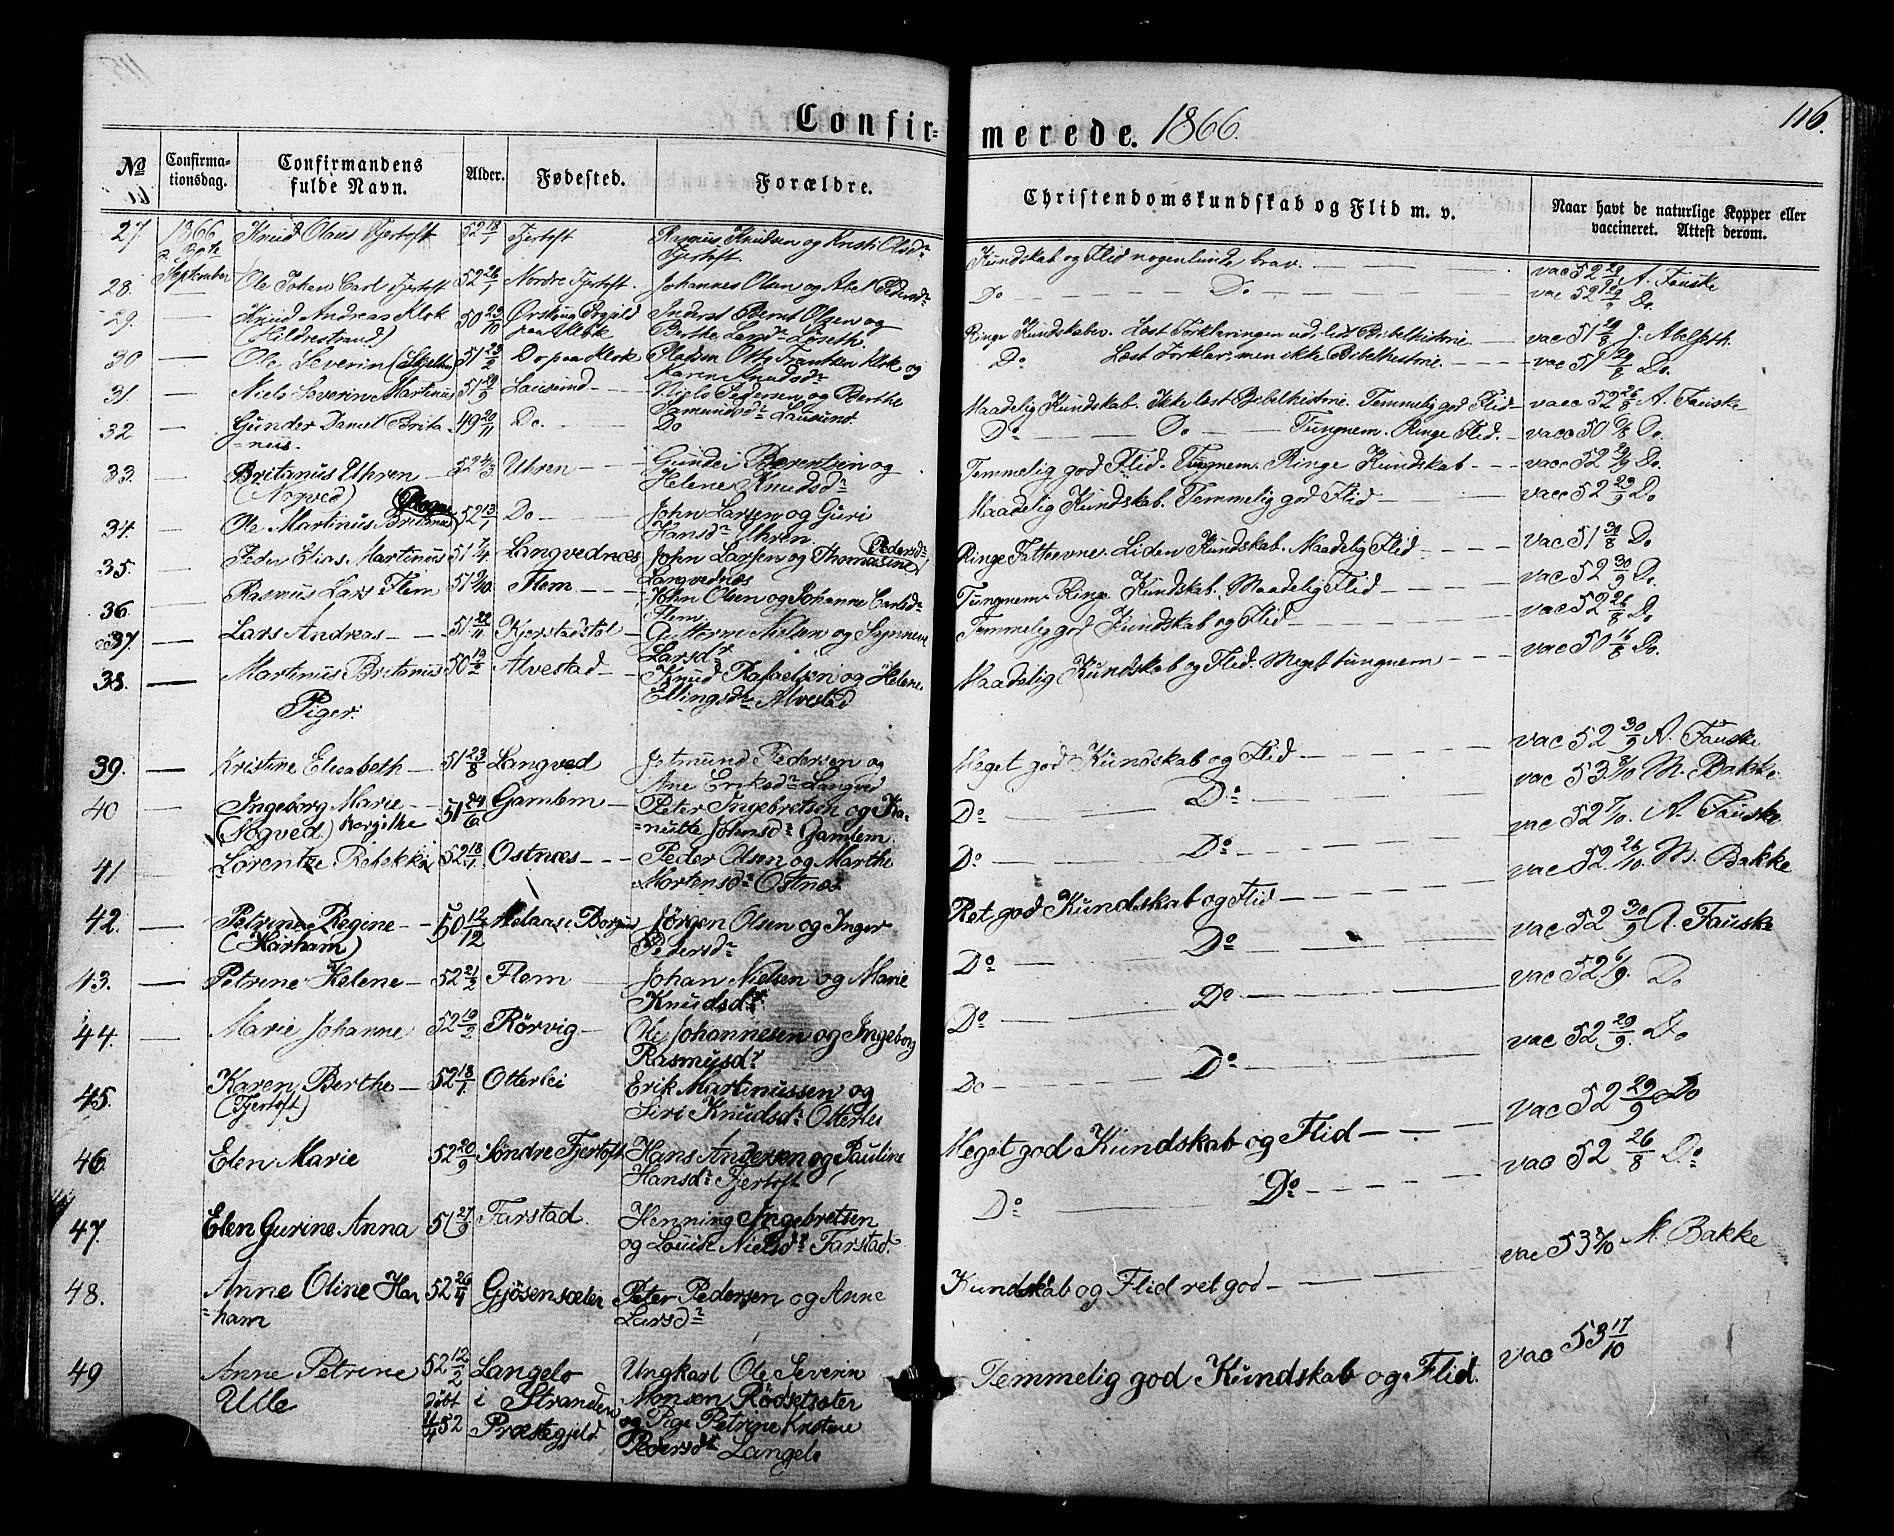 Confirmerede. 1866. 116.
No
Confirmationsdag.
Confirmandens fulde Navn.
Alder.
Fødested.
Forældre.
Christendomskundskab og Flid m. v.
Naar havt de naturlige Kopper eller vaccineret. Attest derom.
27 1866 Knud Olaus Fjertoft 52 18/1 Fjertoft Rasmus Knudsen og Olsdr
Fjertoft. Kundskab og Flid nogenlunde brav. vac 52 29/9 A. Fauske
September
28. Ole Johan Carl Fjertoft 52 26/1 Nordre Fjertoft. Johannes Olsen og Pedersdr Do Do vac 52 29/9 Do.
29. Knud Andreas Klok 50 23/10 Ørskoug Inderst Bernt Olsen og
(Hildrestrand) paa Klok Berthe Larsdr Ringe Kundskaber. Læst Forklaringen ud, lidt Bibelhistorie. vac 51 29/8 J. Abelseth.
30 Ole Severin 51 23/2 Do paa Klok Pladsm Otto Frantsen Klok og
Karen Knudsdr Do Læst Forklar: men ikke Bibelhistorie. vac 51 29/8 Do.
31 Niels Severin Martinus 51 29/9 Lausund Niels Pedersen og Berthe
Lausund. Maadelig Kundskab. Ikke læst Bibelhistorie. Temmelig god Flid vacc 52 26/8 A. Fauske
32 Gunder Daniel Brita 49 20/11 Do. Do Do Do Tungnem. Ringe Flid. vacc 50 Do.
=nus.
33. Britanus Uhren 52 4/3 Uhren Gunder Berentsen og
(Nogved) Helene Knudsdr Temmelig god Flid. Tungnem. Ringe Kundskab vacc 52 Do.
34. Ole Martinus Britanus 52 13/1 Do John Larsen og Guri
Hansdr Uhren. Maadelig Kundskab. Temmelig god Flid vacc 52 29/9 Do
35. Peder Elias Martinus 51 7/4 Langvednæs John Larsen og Thomasine Pedersdr
Langvednæs Ringe Fatteevne. Liden Kundskab. Maadelig Flid vac 51 30/8 Do
36. Rasmus Lars Flem 51 Flem John Olsen og Johanne Carlsdr
Flem Tungnem. Ringe Kundskab. Maadelig Flid vac 52 30/9 Do.
37. Lars Andreas 51 22/11 Kjerstadstøl Guttorm Nielsen og Synneve
Larsdr Temmelig god Kundskab og Flid vac 52 26/8 Do
38. Martinus Britanus 50 Alvestad Knud Rafaelsen og Helene
Ellingsdr Alvestad Maadelig Kundskab og Flid. Meget tungnem vac 50 16/8 Do.
Piger.
39. Kristine Elisabeth 51 23/8 Langved Jetmund Pedersen og
Ane Eriksdr Langved Meget god Kundskab og Flid vac 52 30/9 A. Fauske
40 Ingeborg Marie 51 24/6 Gamlem Peter Ingebretsen og Ka
(Nogved) Bergithe =nutte Johnsdr Gamlem. Do Do vac 53 M. Bakke
41 Lorentze Rebekka 52 18/1 Ostnæs Peder Olsen og Marthe
Mortensdr Ostnæs. Do Do vac 52 7/10. A. Fauske
42. Petrine Regine 50 12/12 Borgund Jørgen Olsen og Inger
(Harham) Pedersdr Ret god Kundskab og Flid vac 52. 26/10 M. Bakke
43. Petrine Helene 52 21/2 Flem Johan Nielsen og Marie
Knudsdr Do Do vac 52 30/9 A. Fauske
44. Marie Johanne 52 19/2 Rörvig Ole Johannesen og Ingeborg
Rasmusdr Do Do vac 52 6/9. Do
45. Karen Berthe 52 18/1. Otterlei Erik Martinussen og
(Fjertoft) Siri Knudsdr Otterlei Do Do vac 52 29/9. Do
46. Elen Marie 52 20/9 Søndre Fjertoft Hans Andersen og Pauline
Hansdr Fjertoft Meget god Kundskab og Flid vac 52 29/9 Do
47. Elen Gurine Anna 51 27/9 Farstad. Henning Ingebretsen
og Louise Nielsdr Farstad. Do Do vac 52 26/8 Do
48. Anne Oline Har 52 26/4 Gjøsensæter Peter Pedersen og Anne
=ham Larsdr Kundskab og Flid ret god vac 53 M. Bakke
49 Anne Petrine 52 12/2 Langelo Ungkarl Ole Severin
Ulle døbt i Stranden Monsen Rödsetsæter
11/4 52 Præstegjeld og Pige Petrine Kristine
Pedersdr Langelo Temmelig god Kundskab og Flid. vac 53 17/10